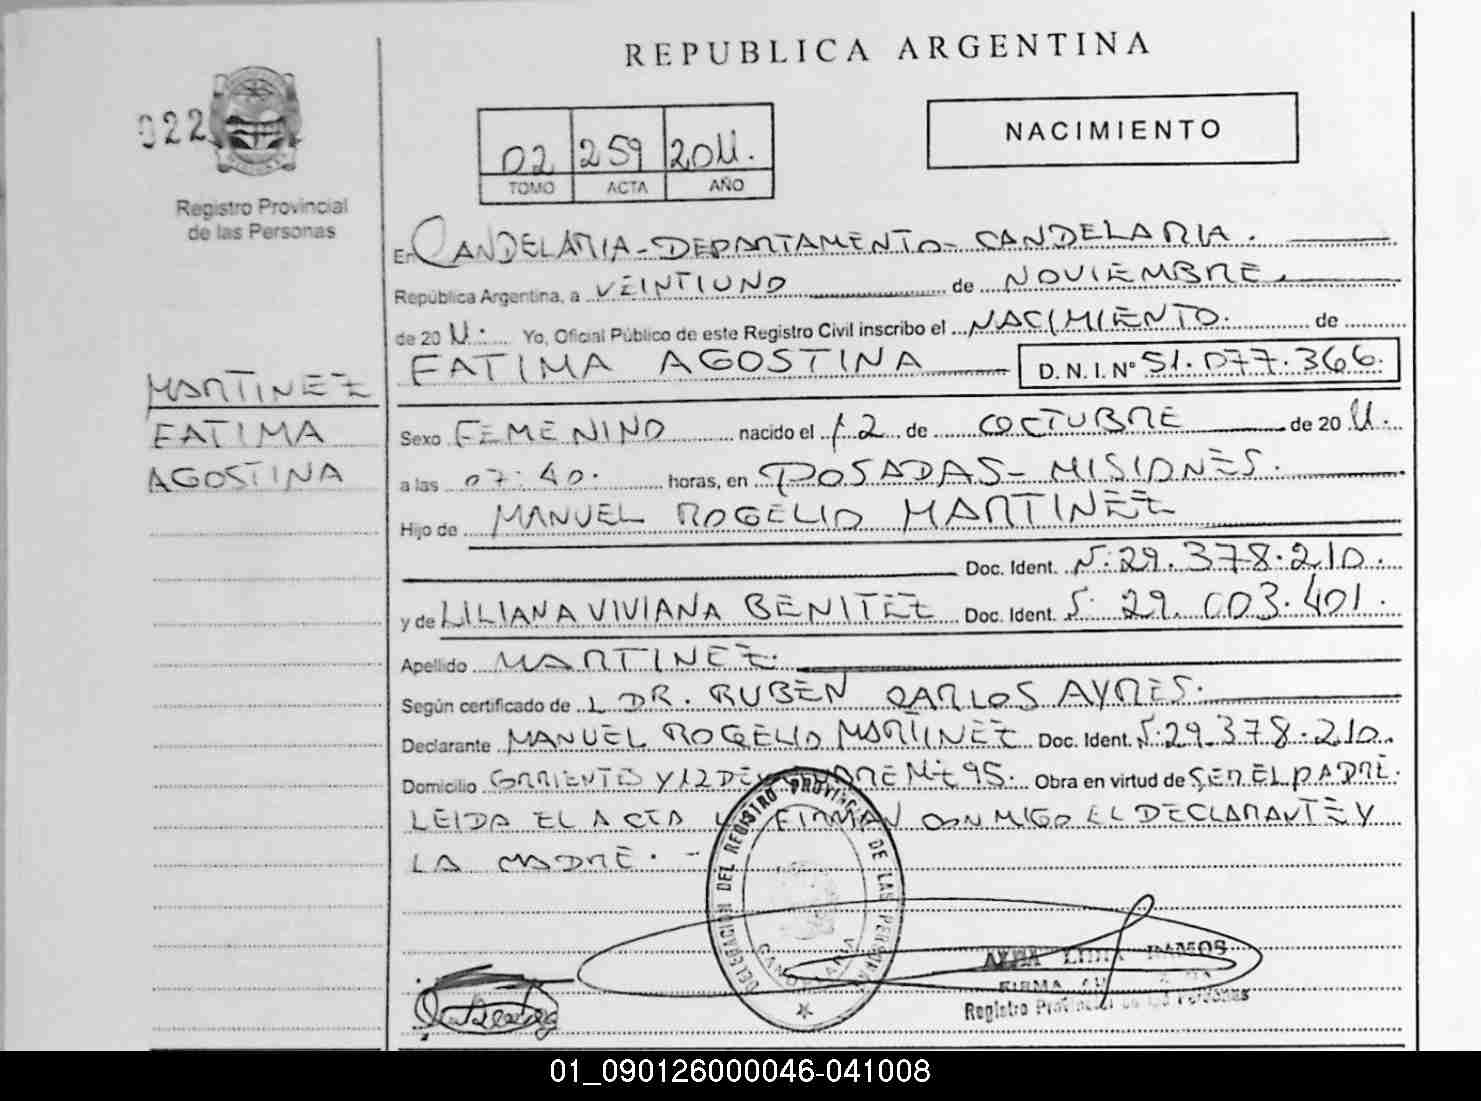 REPUBLICA ARGENTINA
022
Registro Provincial
de las Personas
02 259 2011.
TOMO ACTA AÑO
NACIMIENTO
En CANDELARIA-DEPARTAMENTO- CANDELARIA.
República Argentina, a VEINTIUNO de NOVIEMBRE.
de 20 11. Yo, Oficial Público de este Registro Civil inscribo el NACIMIENTO. de
FATIMA AGOSTINA D. N. I. Nº 51.077.366.
MARTINEZ
FATIMA
AGOSTINA
Sexo FEMENINO nacido el 12 de OCTUBRE de 20 11.
a las 07:40. horas, en POSADAS- MISIONES.
Hijo de MANUEL ROGELIO MARTINEZ
Doc. Ident. Nº 29.378.210.
y de LILIANA VIVIANA BENITEZ Doc. Ident. Nº 29.003.401.
Apellido MARTINEZ.
Según certificado de L DR. RUBEN CARLOS AYRES.
Declarante MANUEL ROGELIO MARTINEZ Doc. Ident. Nº 29.378.210.
Domicilio CORRIENTES Y 12 DE 95. Obra en virtud de SER EL PADRE.
LEIDA EL ACTA FIRMAN CONMIGO EL DECLARANTE Y
LA MADRE. -
DELEGACION DEL REGISTRO PROVINCIAL DE LAS PERSONAS
CANDELARIA
LIDIA RAMOS
FIRMA
Registro Provincial de las Personas
01_090126000046-041008